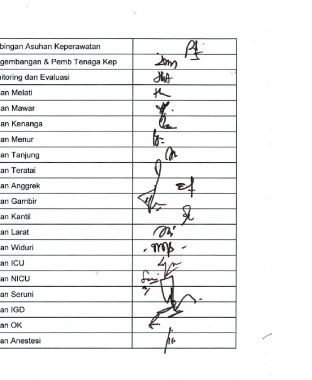 bingan Asuhan Keperawatan
gembangan & Pemb Tenaga Kep
itoring dan Evaluasi
an Melati
an Mawar
an Kenanga
an Menur
an Tanjung
an Teratai
an Anggrek
an Gambir
an Kantil
an Larat
an Widuri
an ICU
an NICU
an Seruni
an IGD
an OK
an Anestesi